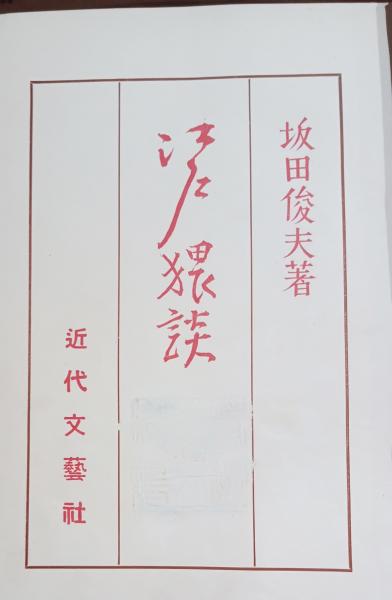 坂田俊夫著
江戸猥談
近代文藝社